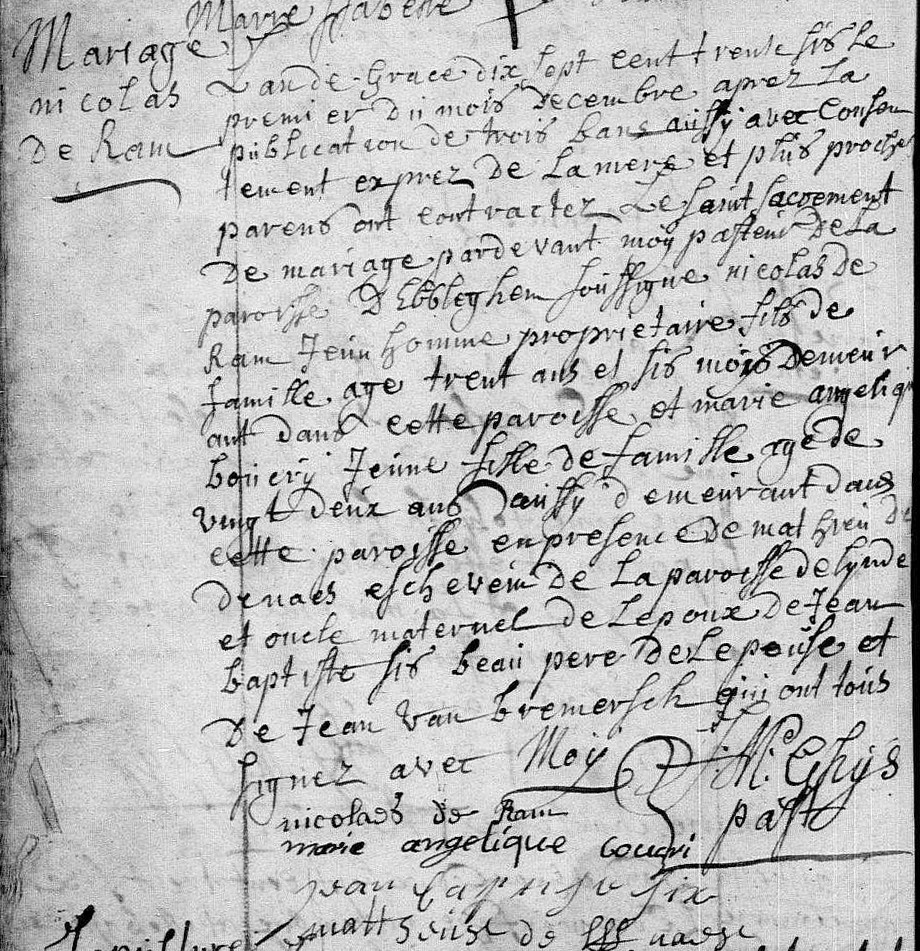 Marie
Mariage
nicolas
De Ram
Lan de Grace dix sept cent trente sis le
premier du mois decembre aprez la
publication de trois bans aussy avec Consen
tement exprez de la mere et plus proche
parens ont contractez Le saint sacrement
De mariage pardevant moy pasteur De La
paroisse D'Ebbleghem soussigne nicolas de
Ram Jeun homme proprietaire fils de
famille age trent ans et sis mois Demeur
ant dans cette paroisse et marie angeliq
boucry Jeune fille de famille age de
vingt deux ans aussy demeurant dans
cette paroisse en presence De mathieu de
denaes eschevein De La paroisse de lynde
et oncle maternel de Lepoux De Jean
baptiste sis beau pere De Lepouse et
De Jean Van bremersch qui ont tous
signez avec Moy J: M: Ghys
past
nicolaes de Ram
marie angelique coucri
jean baptiste six
mattheuse de naese